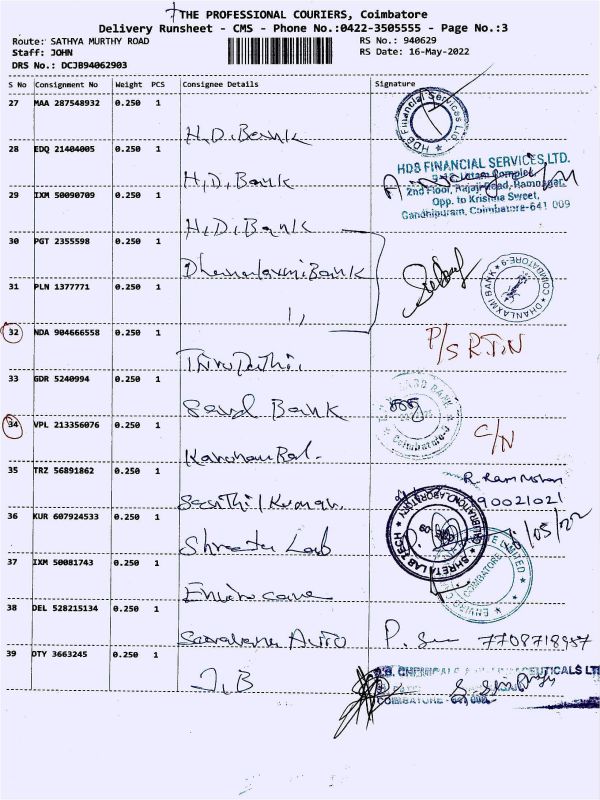 THE PROFESSIONAL COURIERS, Coimbatore
Delivery Runsheet - CMS - Phone No.:0422-3505555 - Page No.:3
Route: SATHYA MURTHY ROAD RS No.: 940629
Staff: JOHN RS Date: 16-May-2022
DRS No.: DCJB94062903
S No Consignment No Weight PCS Consignee Details Signature
27 MAA 287548932 0.250 1 H.D.Bank
HDB Financial Services Ltd.
28 EDQ 21404005 0.250 1 H.D.Bank
HDB FINANCIAL SERVICES LTD.
2nd Floor, Rajaji Road, Ramnagar,
Opp. to Krishna Sweet,
Gandhipuram, Coimbatore-641 009
29 IXM 50090709 0.250 1 H.D.Bank
30 PGT 2355598 0.250 1 Dhanalaxmi Bank
DHANLAXMI BANK COIMBATORE-9
31 PLN 1377771 0.250 1 ,,
32 NDA 904666558 0.250 1 Thirupathi.
P/S R.T.N
33 GDR 5240994 0.250 1 Bank
BANK
Coimbatore
34 VPL 213356076 0.250 1
C/N
35 TRZ 56891862 0.250 1 Senthil Kumar.
R. Ram Mohan
90021021
36 KUR 607924533 0.250 1 Shreeta Lab
SHRETA LAB TECH
/05/22
37 IXM 50081743 0.250 1 Envirocare
ENVIRO LIMITED
COIMBATORE
38 DEL 528215134 0.250 1 Saravana Auto
P. 7708718957
39 DTY 3663245 0.250 1 J.B
J.B. CHEMICALS & PHARMACEUTICALS LTD
COIMBATORE